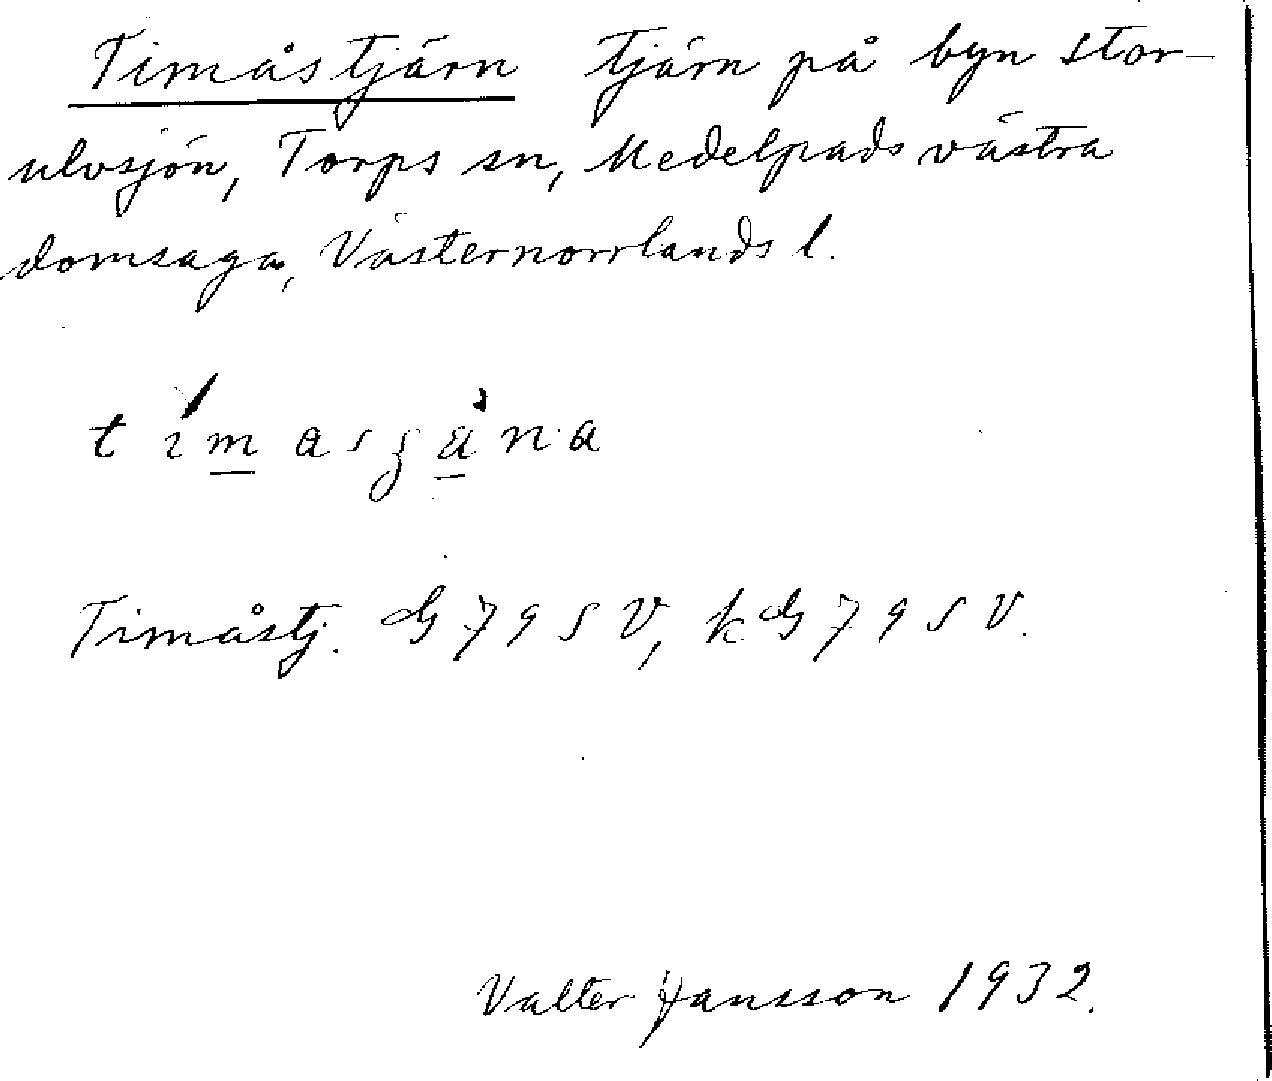 Timåstjärn tjärn på byn Stor-
ulvsjön, Torps sn, Medelpads västra
domsaga, Västernorrlands l.
Timåstj. G 79 SV, kG 79 SV.
Valter Jansson 1932.